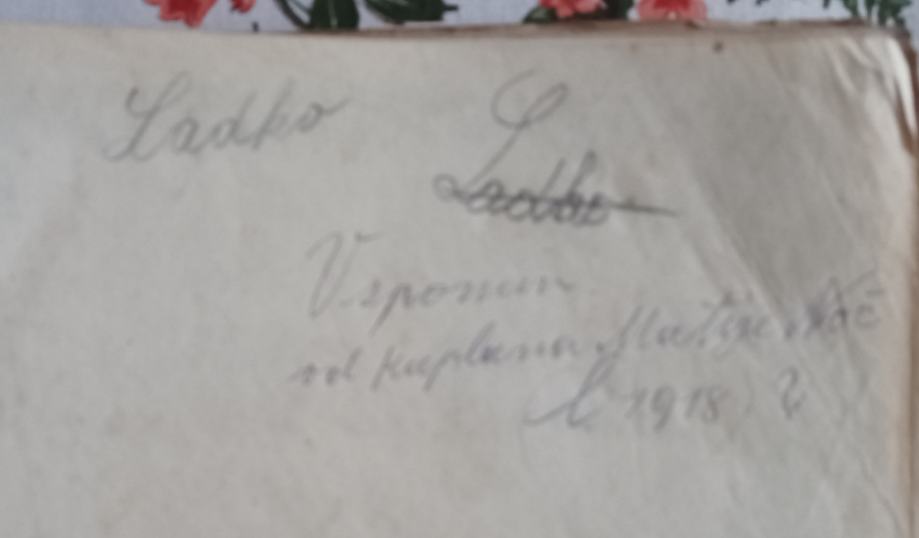 Ladko
L
Ladko
V spomin
od kaplana Matije
l 1918